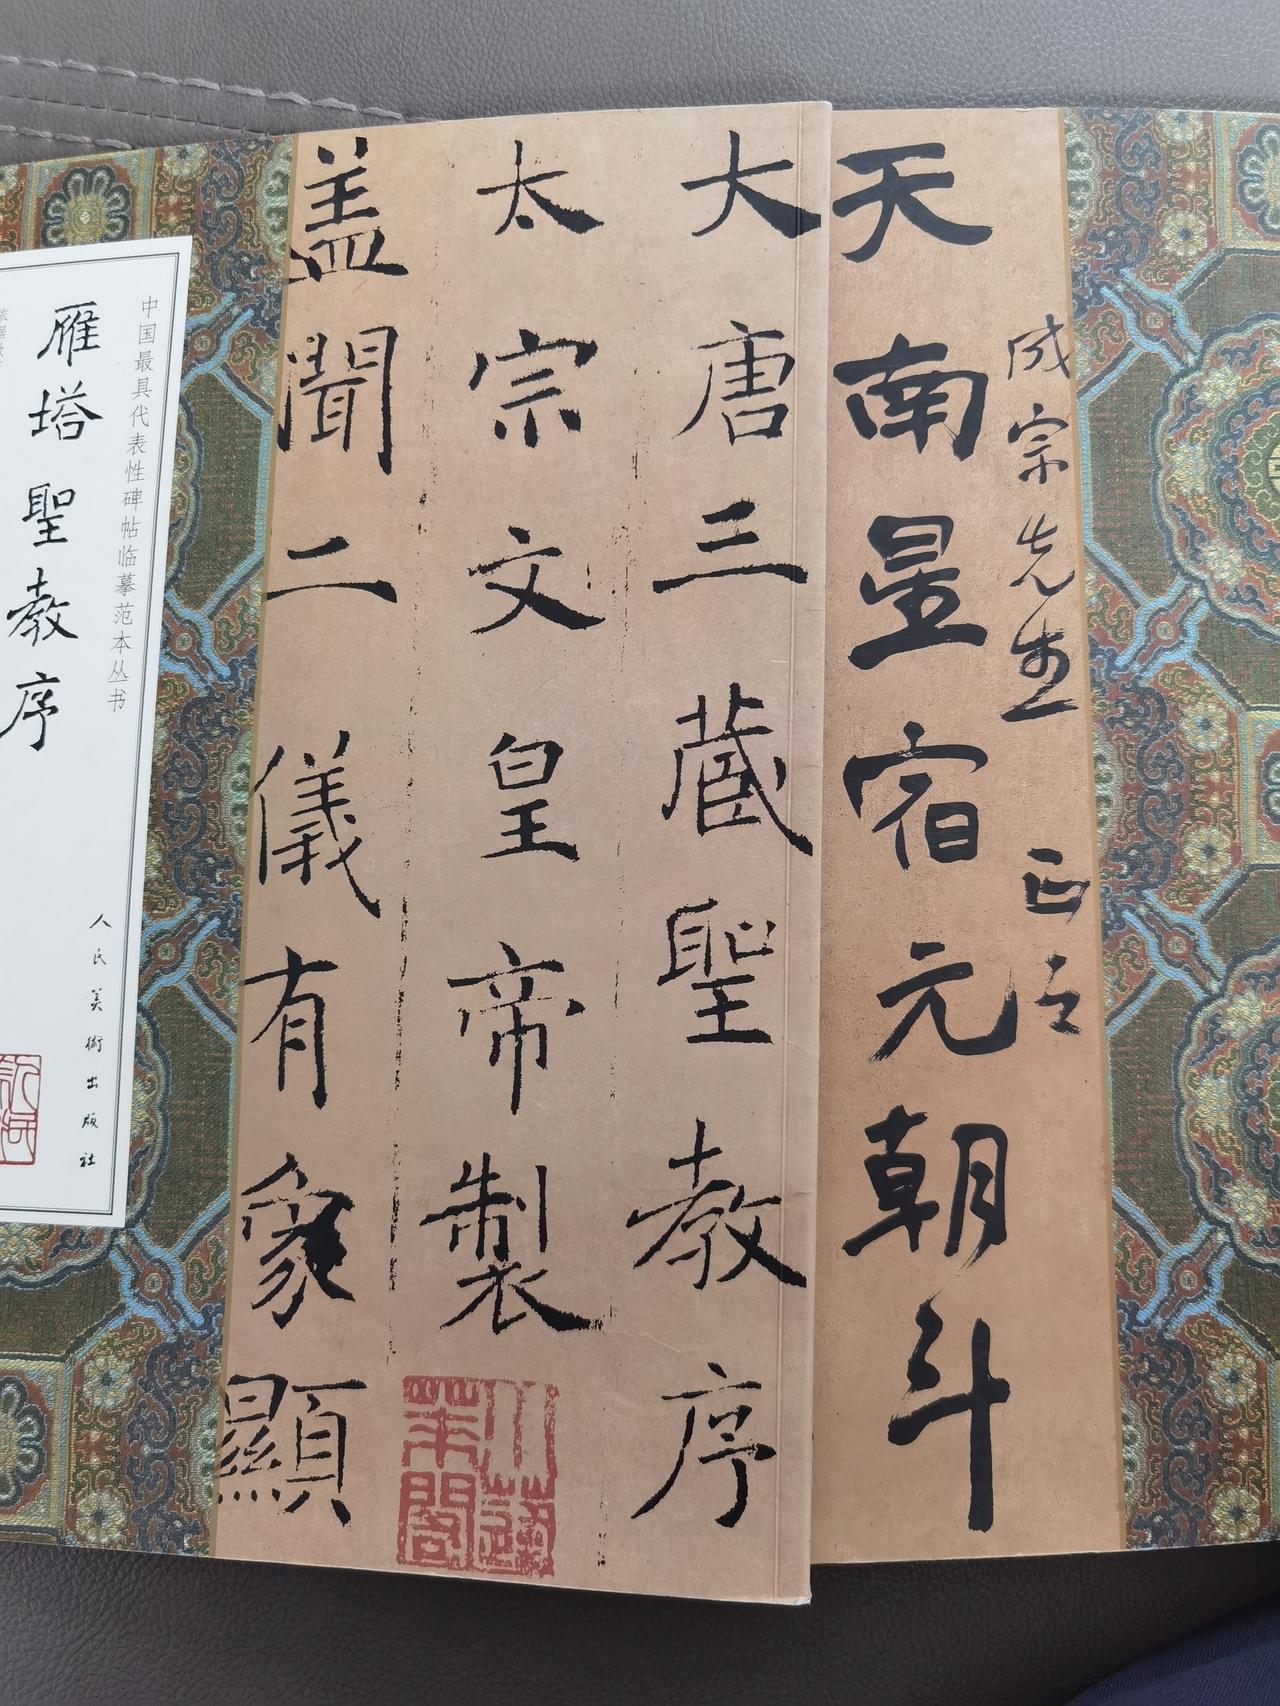 成宗先生正之
天南星宿元朝斗
大唐三藏聖教序
太宗文皇帝製
蓋聞二儀有象顯
中国最具代表性碑帖临摹范本丛书
雁塔聖教序
人民美術出版社